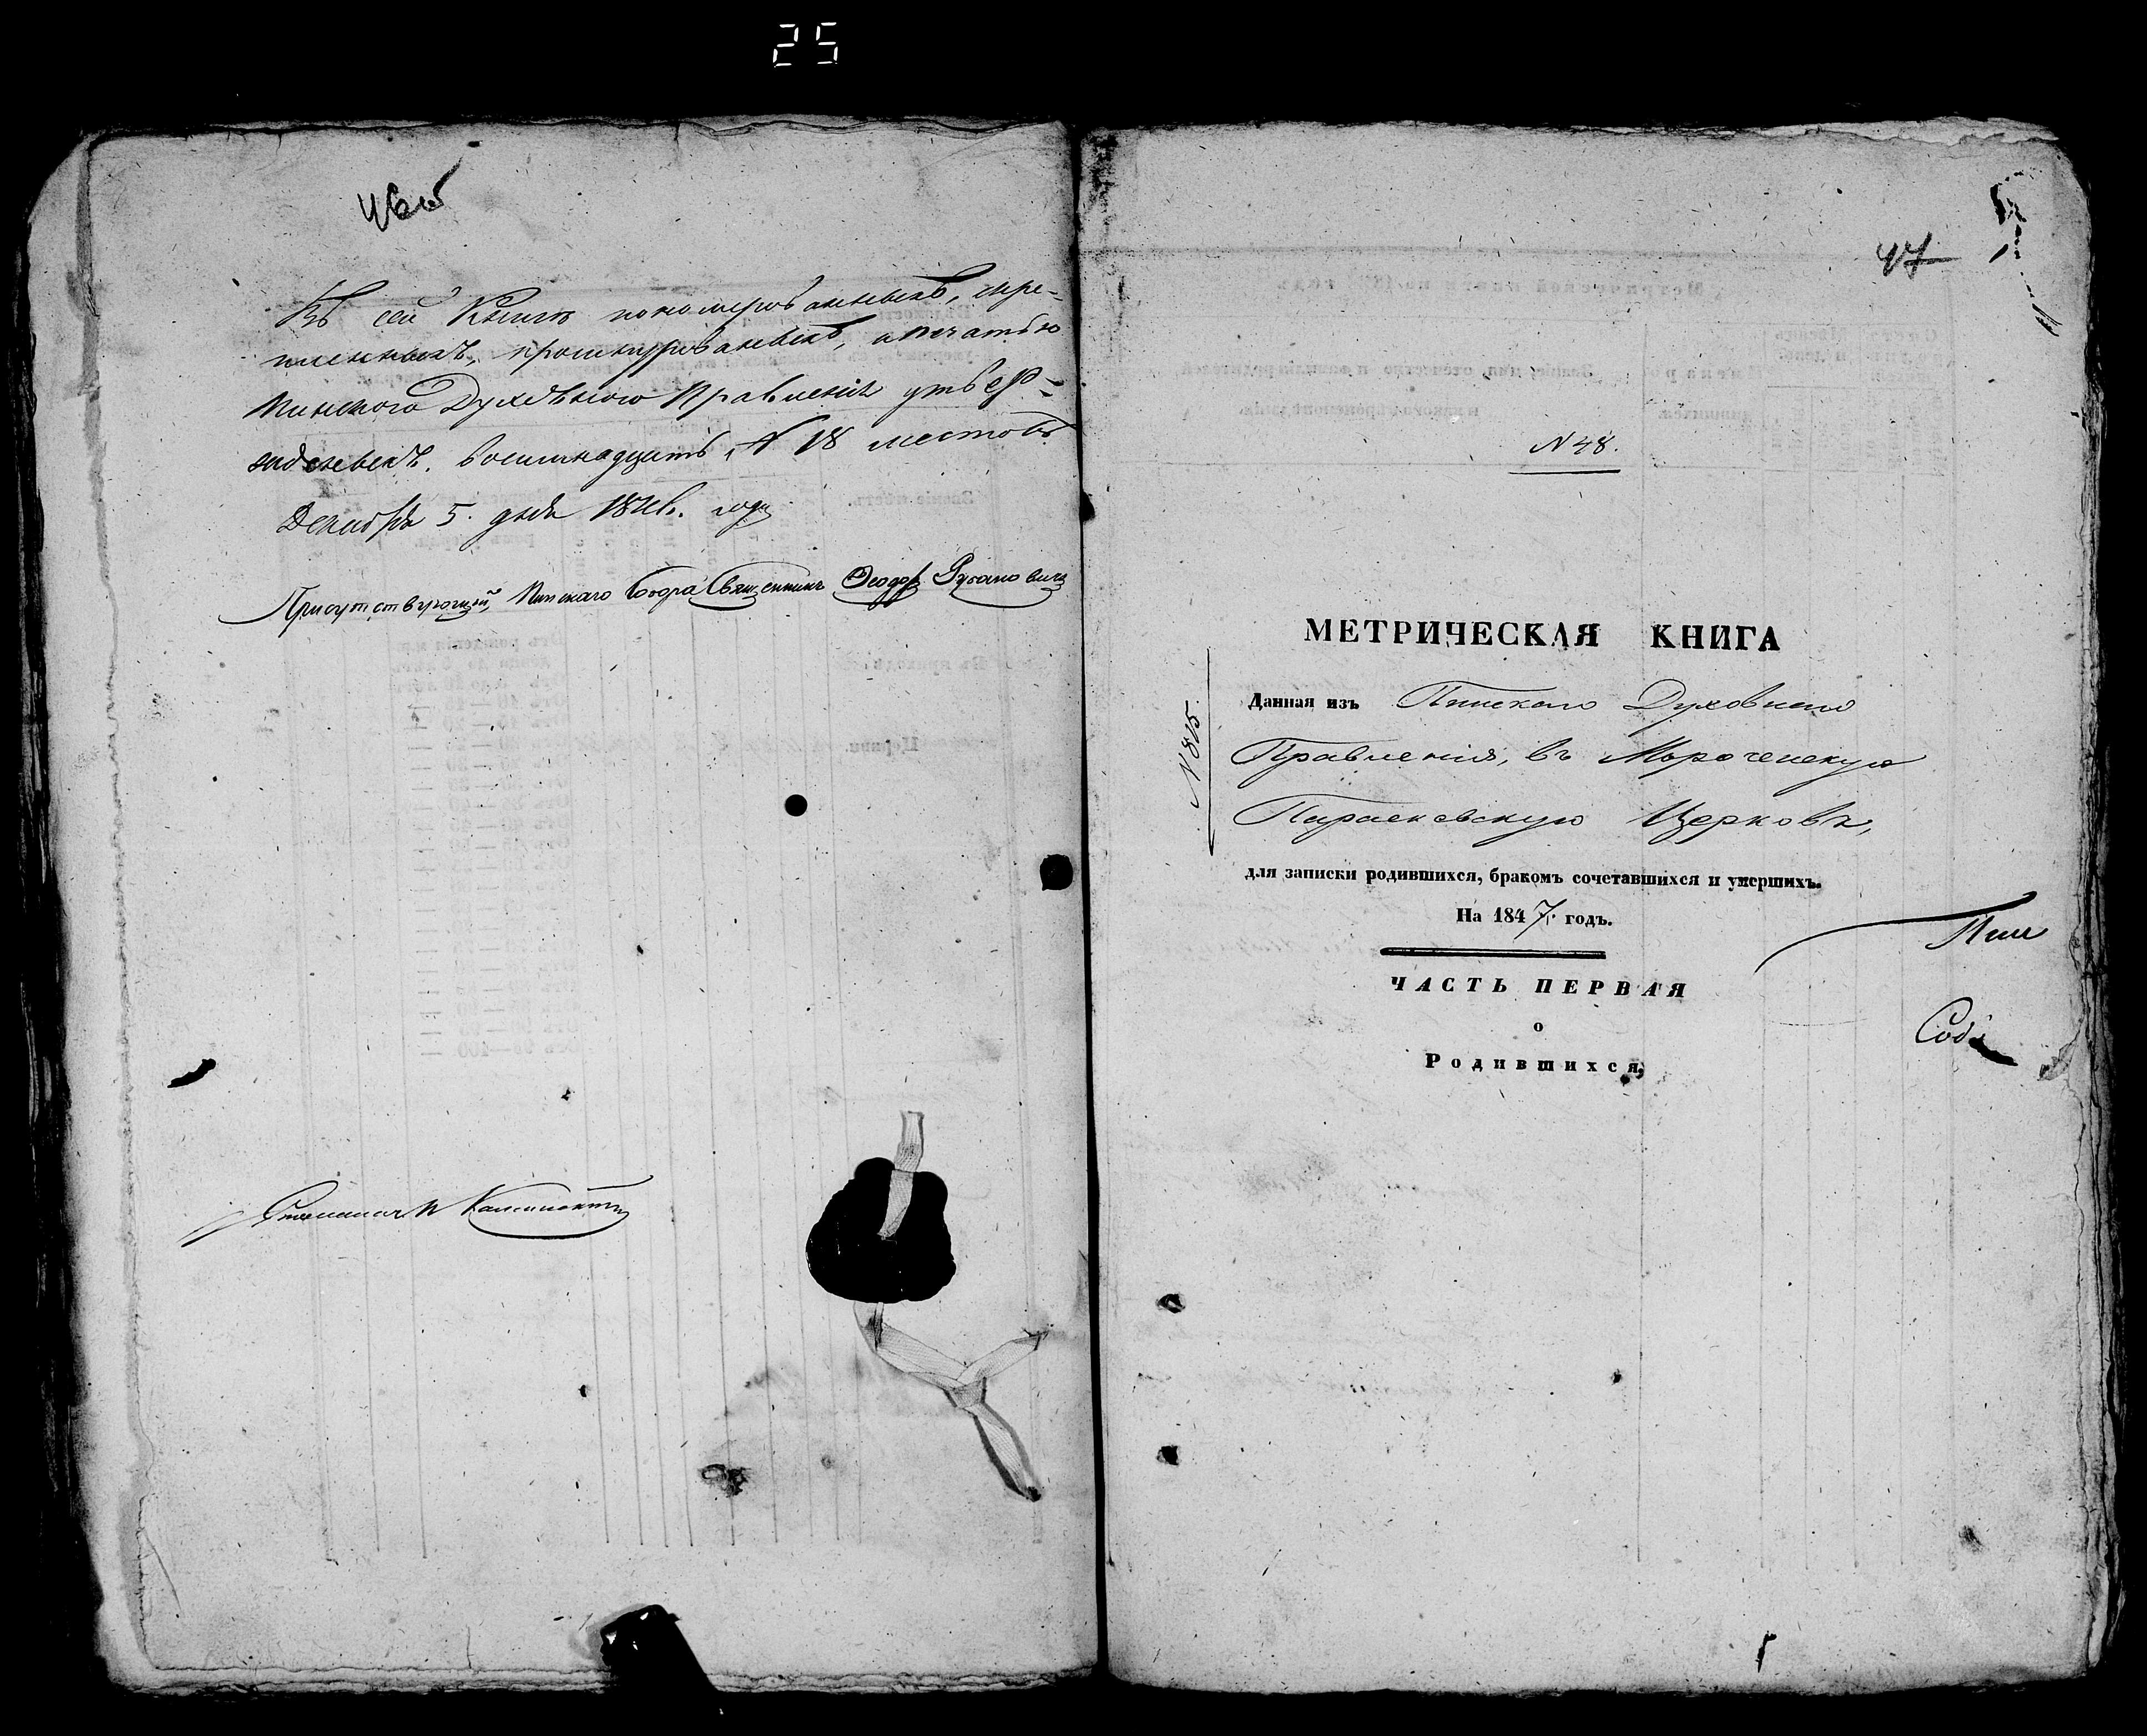 25
46об
Въ сей Книгѣ пономерованныхъ, скре-
пленныхъ, прошнурованныхъ, и печатью
Пинского Духовного Правленія утвер-
жденныхъ. восимнадцать, N 18 листовъ
Декабря 5. дня 1846. года
Присутствующій, Пинскаго Собора Священникъ Ѳеодоръ
47
N 48.
МЕТРИЧЕСКАЯ КНИГА
N 845.
Данная изъ Пинскаго Духовнаго
Правленія, въ Мороченскую
Параскевскую Церковь,
для записки родившихся, бракомъ сочетавшихся и умершихъ.
На 1847. годъ.
ЧАСТЬ ПЕРВАЯ
о
Родившихся,
Пин
Соб